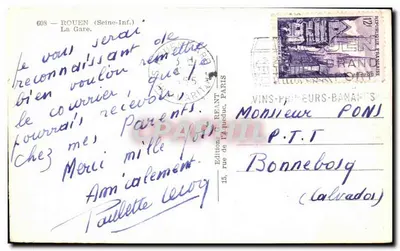 608 - ROUEN (Seine-Inf.)
La Gare.
Je vous serai
reconnaissant de
bien vouloir remettre
le courrier, que je
pourrais recevoir,
chez mes Parents.
Merci mille fois
Amicalement.
Paulette
Edition
15, rue PARIS
12
ROUEN
GRAND
PORT
VINS-PRIMEURS-BANANES
Monsieur PONS
P.T.T
Bonnebosq
(Calvados)